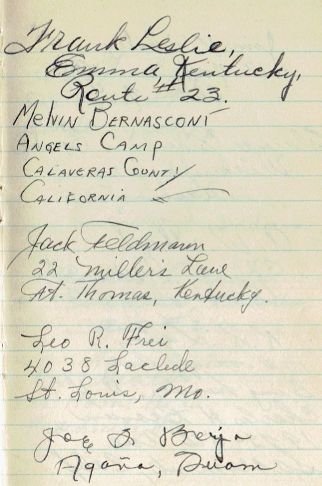 Frank Leslie,
Emma, Kentucky,
Route # 23.
MELVIN BERNASCONI
ANGELS CAMP
CALAVERAS COUNTY
CALIFORNIA
Jack Feldmann
22 Miller's Lane
Ft. Thomas, Kentucky.
Leo R. Frei
4038 Laclede
St. Louis, Mo.
Joe Borja
Agaña, Guam